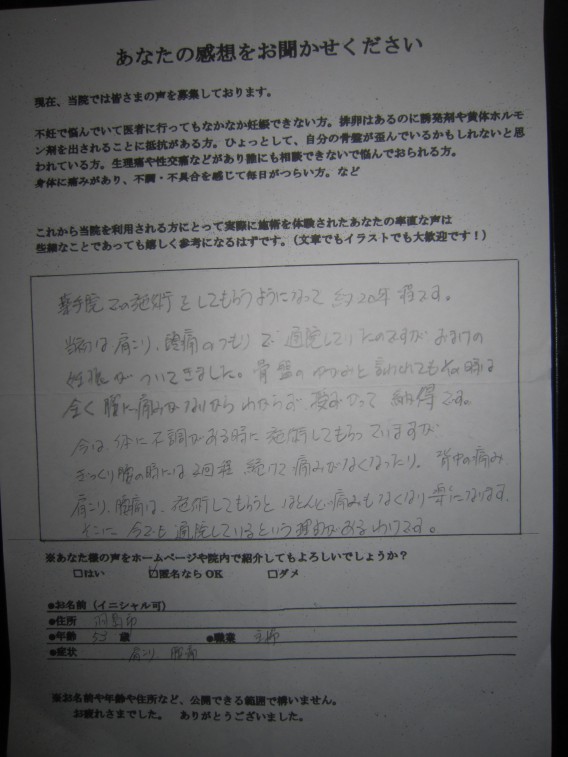 あなたの感想をお聞かせください
現在、当院では皆さまの声を募集しております。
不妊で悩んでいて医者に行ってもなかなか妊娠できない方。排卵はあるのに誘発剤や黄体ホルモ
ン剤を出されることに抵抗がある方。ひょっとして、自分の骨盤が歪んでいるかもしれないと思
われている方。生理痛や性交痛などがあり誰にも相談できないで悩んでおられる方。
身体に痛みがあり、不調・不具合を感じて毎日がつらい方。など
これから当院を利用される方にとって実際に施術を体験されたあなたの率直な声は
些細なことであっても嬉しく参考になるはずです。（文章でもイラストでも大歓迎です！）
院での施術をしてもらうようになって 約20年程です。
当初は肩こり、腰痛のつもりで通院していたのですが おまけの
妊娠がついてきました。骨盤のゆがみと言われてもその時は
全く腰に痛みがないからわからず 授かって 納得です。
今は、体に不調がある時に施術してもらっていますが
ぎっくり腰の時には2回程 続けて痛みがなくなったり、背中の痛み
肩こり、腰痛は、施術してもらうと ほとんど痛みもなくなり 楽になります。
そこに 今でも通院しているという理由があるわけです。
※あなた様の声をホームページや院内で紹介してもよろしいでしょうか？
□はい ☑匿名ならOK □ダメ
●お名前（イニシャル可）
●住所 羽島市
●年齢 53 歳 ●職業 主婦
●症状 肩こり、腰痛
※お名前や年齢や住所など、公開できる範囲で構いません。
お疲れさまでした。 ありがとうございました。